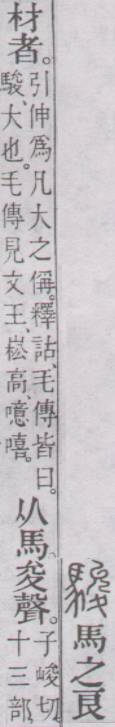 駿馬之良
材者。
引伸爲凡大之偁。釋詁、毛傳皆曰。
駿、大也。毛傳見文王、崧高、噫嘻。
从馬。夋聲。
子峻切
十三部